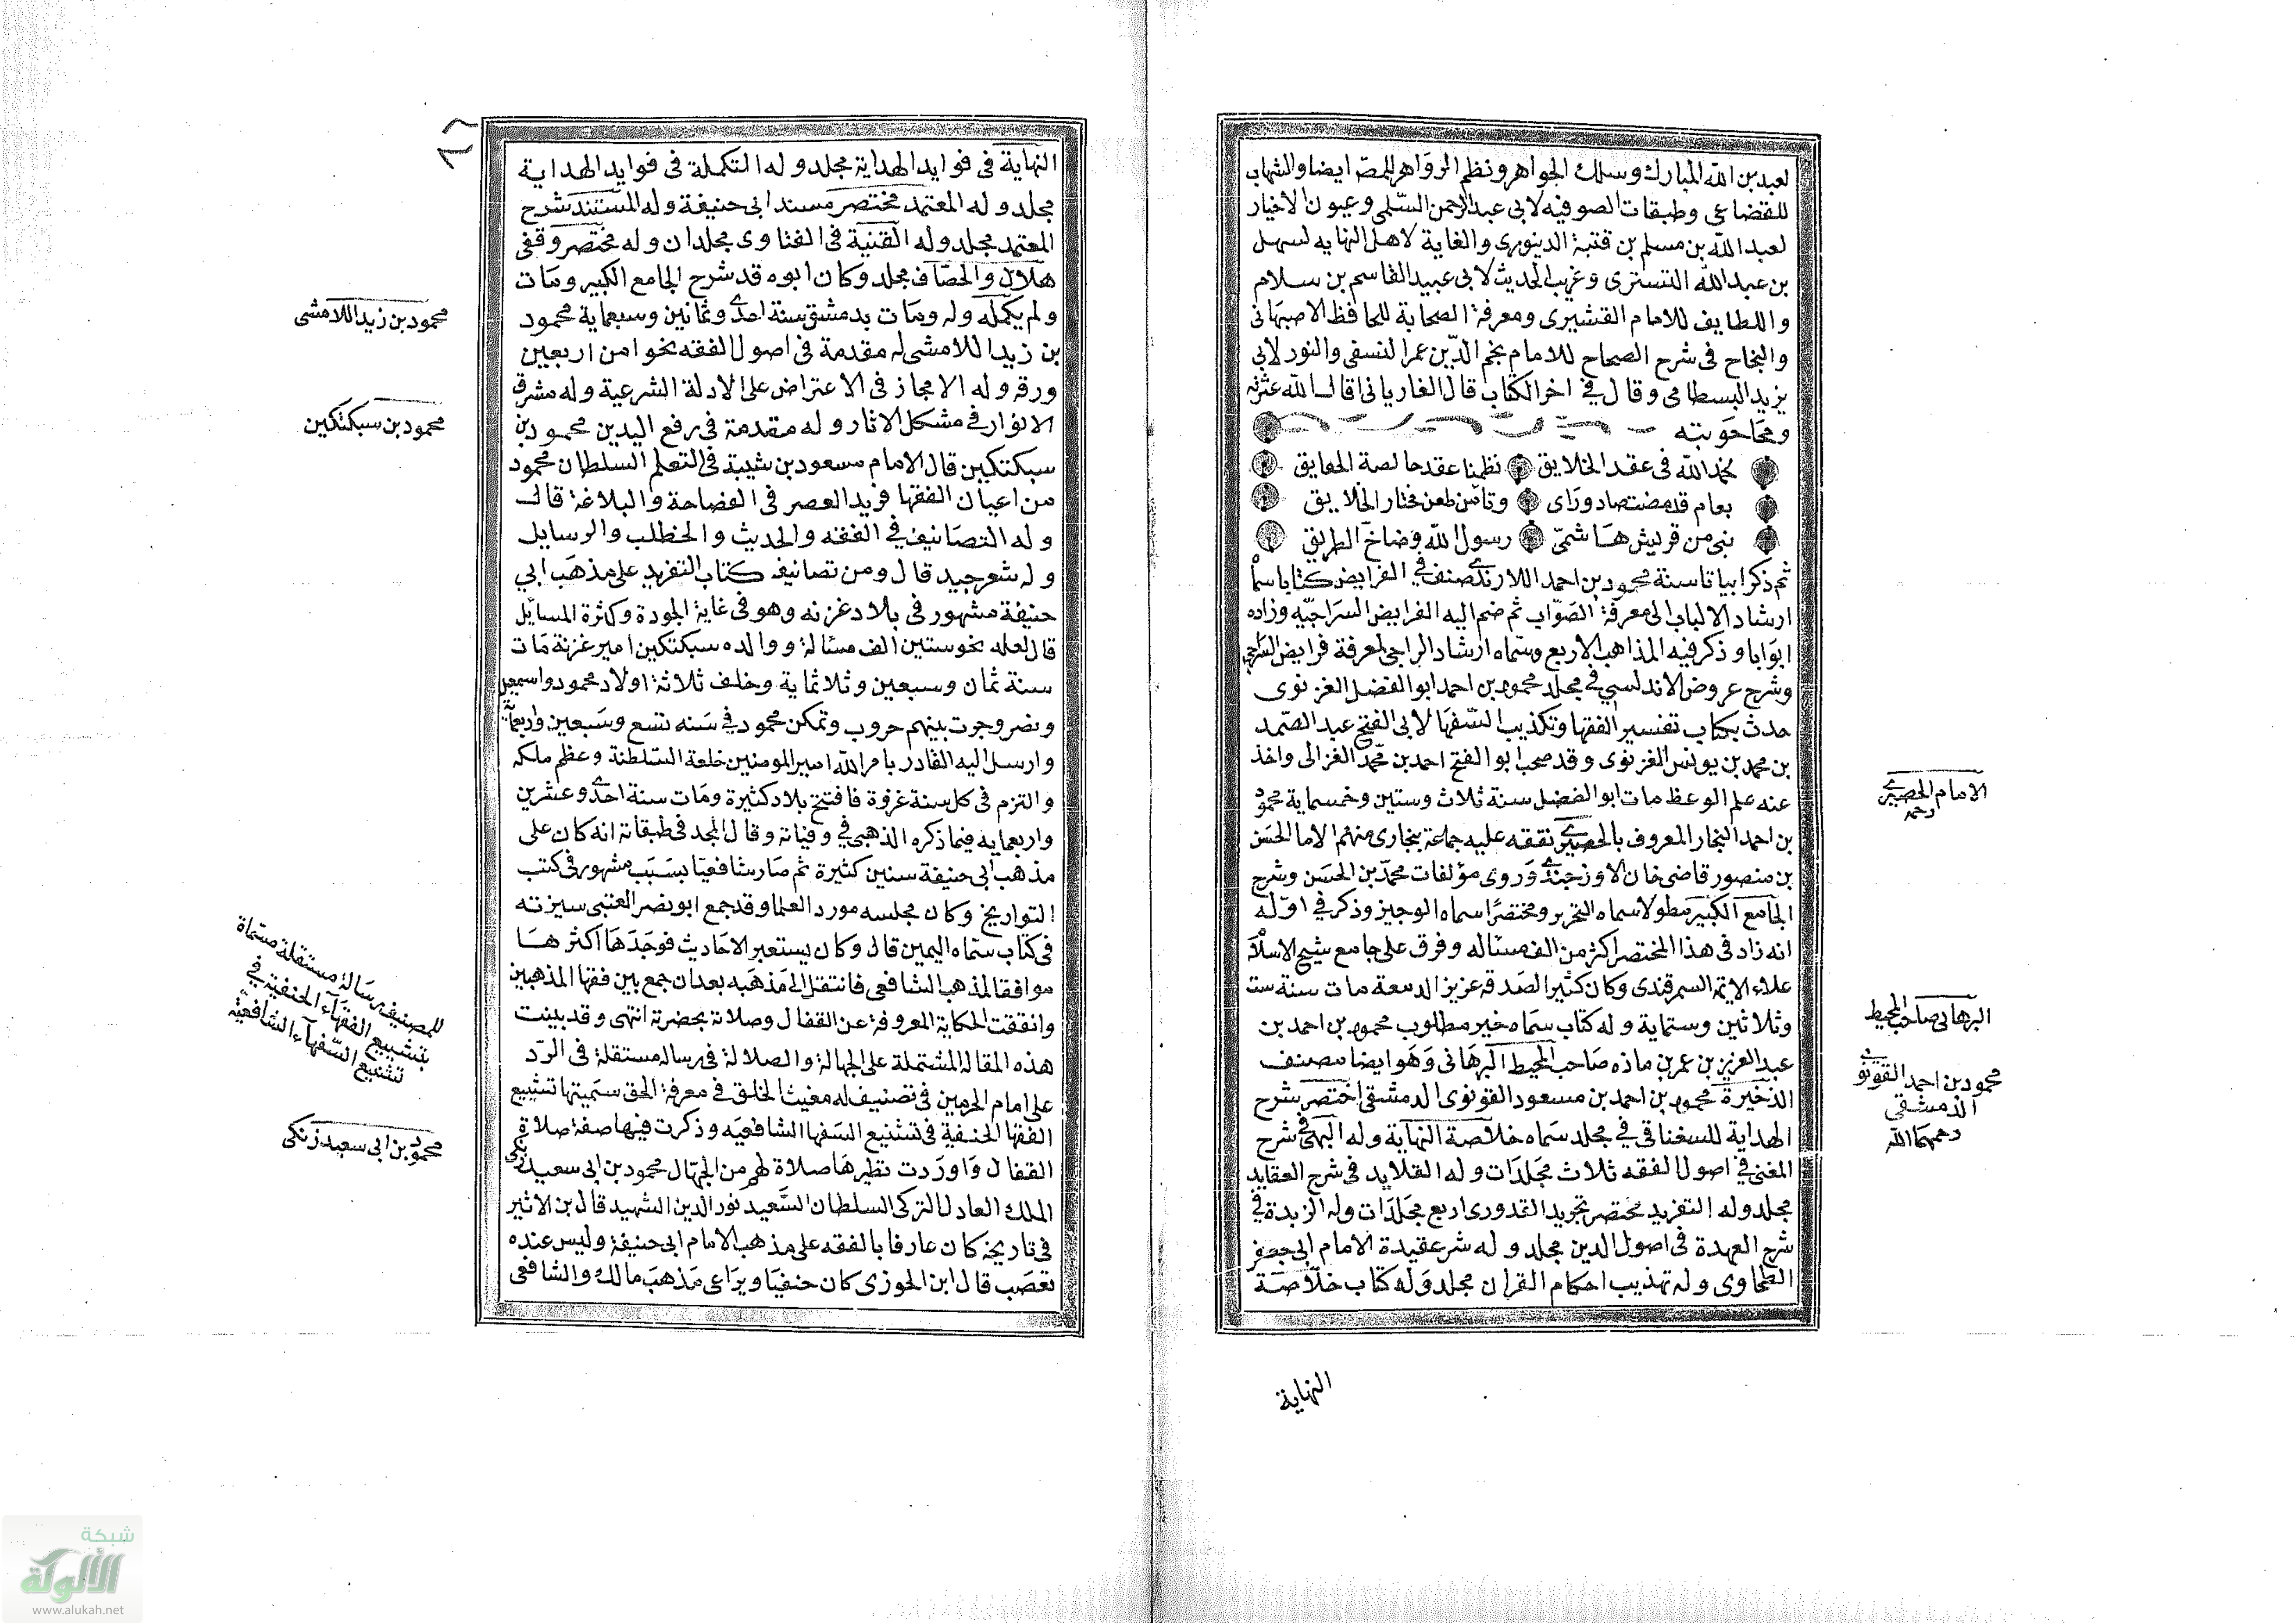 لعبد بن الله المبارك وسلك الجواهر ونظم الزواهر للمص ايضا والشهاب
للقضاعى وطبقات الصوفيه لابى عبد الرحمن السلمى وعيون الاخيار
لعبد الله بن مسلم بن قتبة الدينورى والغاية لاهل النهايه لسهل
بن عبد الله التسترى وغريب الحديث لابى عبيد القاسم بن سلام
واللطايف للامام القشيرى ومعرفة الصحابة للحافظ الاصبهانى
والنجاح فى شرح الصحاح للامام نجم الدين عمر النسفى والنور لابى
يزيد البسطامى وقال فى اخر الكتاب قال الفاريانى اقال الله عثرته
ومحا حوبته
بحمد الله فى عقد الخلايق نظمنا عقد خالصة الحقايق
بعام قد مضت صاد وراى وثامن طعن مختار الخلايق
نبى من قريش هاشمى رسول الله وضاخ الطريق
ثم ذكر ابياتا سنة محمود بن احمد اللارندى صنف فى الفرايض كتابا سماه
ارشاد الالباب الى معرفة الصواب ثم ضم اليه الفرايض السراجيه وزاده
ابوابا وذكر فيه المذاهب الاربع وسماه ارشاد الراجى لمعرفة فرايض السراجى
وشرح عروض الاندلسى فى مجلد محمود بن احمد ابو الفضل الغزنوى
حدث بكتاب تفسير الفقها وتكذيب السفها لابى الفتح عبد الصمد
بن محمد بن يونس الغزنوى وقد صحب ابو الفتح احمد بن محمد الغزالى واخذ
عنه علم الوعظ مات ابو الفضل سنة ثلاث وستين وخمسماية محمود
بن احمد البخار المعروف بالحصيرى تفقه عليه جماعة ببخارى منهم الاما الحسن
بن منصور قاضى خان الاوزجندى وروى مؤلفات محمد بن الحسن وشرح
الجامع الكبير مطولا سماه التحرير ومختصرا سماه الوجيز وذكر فى اوله
انه زاد فى هذا المختصر اكثر من الف مساله وفرق على جامع شيخ الاسلام
علاء الايمة السمرقندى وكان كثير الصدقه عزيز الدمعة مات سنة ست
وثلاثين وستماية وله كتاب سماه خير مطلوب محمود بن احمد بن
عبد العزيز بن عمر بن مازه صاحب المحيط البرهانى وهو ايضا مصنف
الذخيرة محمود بن احمد بن مسعود القونوى الدمشقى اختصر شرح
الهداية للسغناقى فى مجلد سماه خلاصة النهاية وله فى شرح
المغنى فى اصول الفقه ثلاث مجلدات وله القلايد فى شرح العقايد
مجلد وله التفريد مختصر تجريد القدورى اربع مجلدات وله الزبدة فى
شرح العهدة فى اصول الدين مجلد وله شرعقيدة الامام ابى جعفر
الطحاوى وله تهذيب احكام القران مجلد وله كتاب خلاصة
الامام الحصيرى
رحمه
البرهانى صاحب المحيط
محمود بن احمد القونوى
الدمشقى
رحمهما الله
النهاية
النهاية فى فوايد الهداية مجلد وله التكملة فى فوايد الهداية
مجلد وله المعتمد مختصر مسند ابى حنيفة وله المستند شرح
المعتمد مجلد وله القنية فى الفتاوى مجلدان وله مختصر وقفى
هلال والخصاف مجلد وكان ابوه قد شرح الجامع الكبير ومات
ولم يكمله وله ومات بدمشق سنة احدى وثمانين وسبعماية محمود
بن زيد اللامشى له مقدمة فى اصول الفقه نحوا من اربعين
ورقه وله الاعجاز فى الاعتراض على الادلة الشرعية وله مشرق
الانوار فى مشكل الاثار وله مقدمة فى رفع اليدين محمود بن
سبكتكين قال الامام مسعود بن شيبة فى التعلم السلطان محمود
من اعيان الفقها فريد العصر فى الفصاحة والبلاغة قال
وله التصانيف فى الفقه والحديث والخطلب والرسايل
وله شعر جيد قال ومن تصانيفه كتاب التفريد على مذهب ابى
حنيفة مشهور فى بلاد غزنه وهو فى غاية الجودة وكثرة المسائل
قال لعله نحو ستين الف مسالة ووالده سبكتكين امير غزنة مات
سنة ثمان وسبعين وثلاثماية وخلف ثلاثة اولاد محمود واسمعيل
ونصر وجرت بينهم حروب وتمكن محمود فى سنه تسع وسبعين واربعماية
وارسل اليه القادر بامر الله امير المومنين خلعة السلطنة وعظم ملكه
والتزم فى كل سنة غزوة فافتتح بلاد كثيرة ومات سنة احدى وعشرين
واربعمايه فيما ذكره الذهبى فى وفياته وقال المجد فى طبقاته انه كان على
مذهب ابى حنيفة سنين كثيرة ثم صار شافعيا بسبب مشهور فى كتب
التواريخ وكان مجلسه مورد العلما وقد جمع ابو نصر العتبى سيرته
فى كتاب سماه اليمين قال وكان يستعبر الاحاديث فوجدها اكثرها
موافقا لمذهب الشافعى فانتقل الى مذهبه بعد ان جمع بين فقها المذهبين
واتفقت الحكاية المعروفة عن القفال وصلاته بحضرته انتهى وقد بينت
هذه المقاله المشتملة على الجهالة والضلالة فى رساله مستقلة فى الرد
على امام الحرمين فى تصنيف له مغيث الخلق فى معرفة الحق سميتها تشييع
الفقها الحنفية فى تشنيع السفها الشافعيه وذكرت فيها صفة صلاة
القفال واوردت نظيرها صلاة لهم من الجهال محمود بن ابى سعيد زنكى
الملك العادل التركى السلطان السعيد نور الدين الشهيد قال بن الاثير
فى تاريخه كان عارفا بالفقه على مذهب الامام ابى حنيفة وليس عنده
تعصب قال ابن الجوزى كان حنفيا ويراعى مذهب مالك والشافعى
محمود بن زيد اللامشى
محمود بن سبكتكين
للمصنف رسالة مستقلة مسماة
بتشييع الفقهاء الحنفية فى
تشنيع السفهاء الشافعية
محمود بن ابى سعيد زنكى
شبكة
الألوكة
www.alukah.net